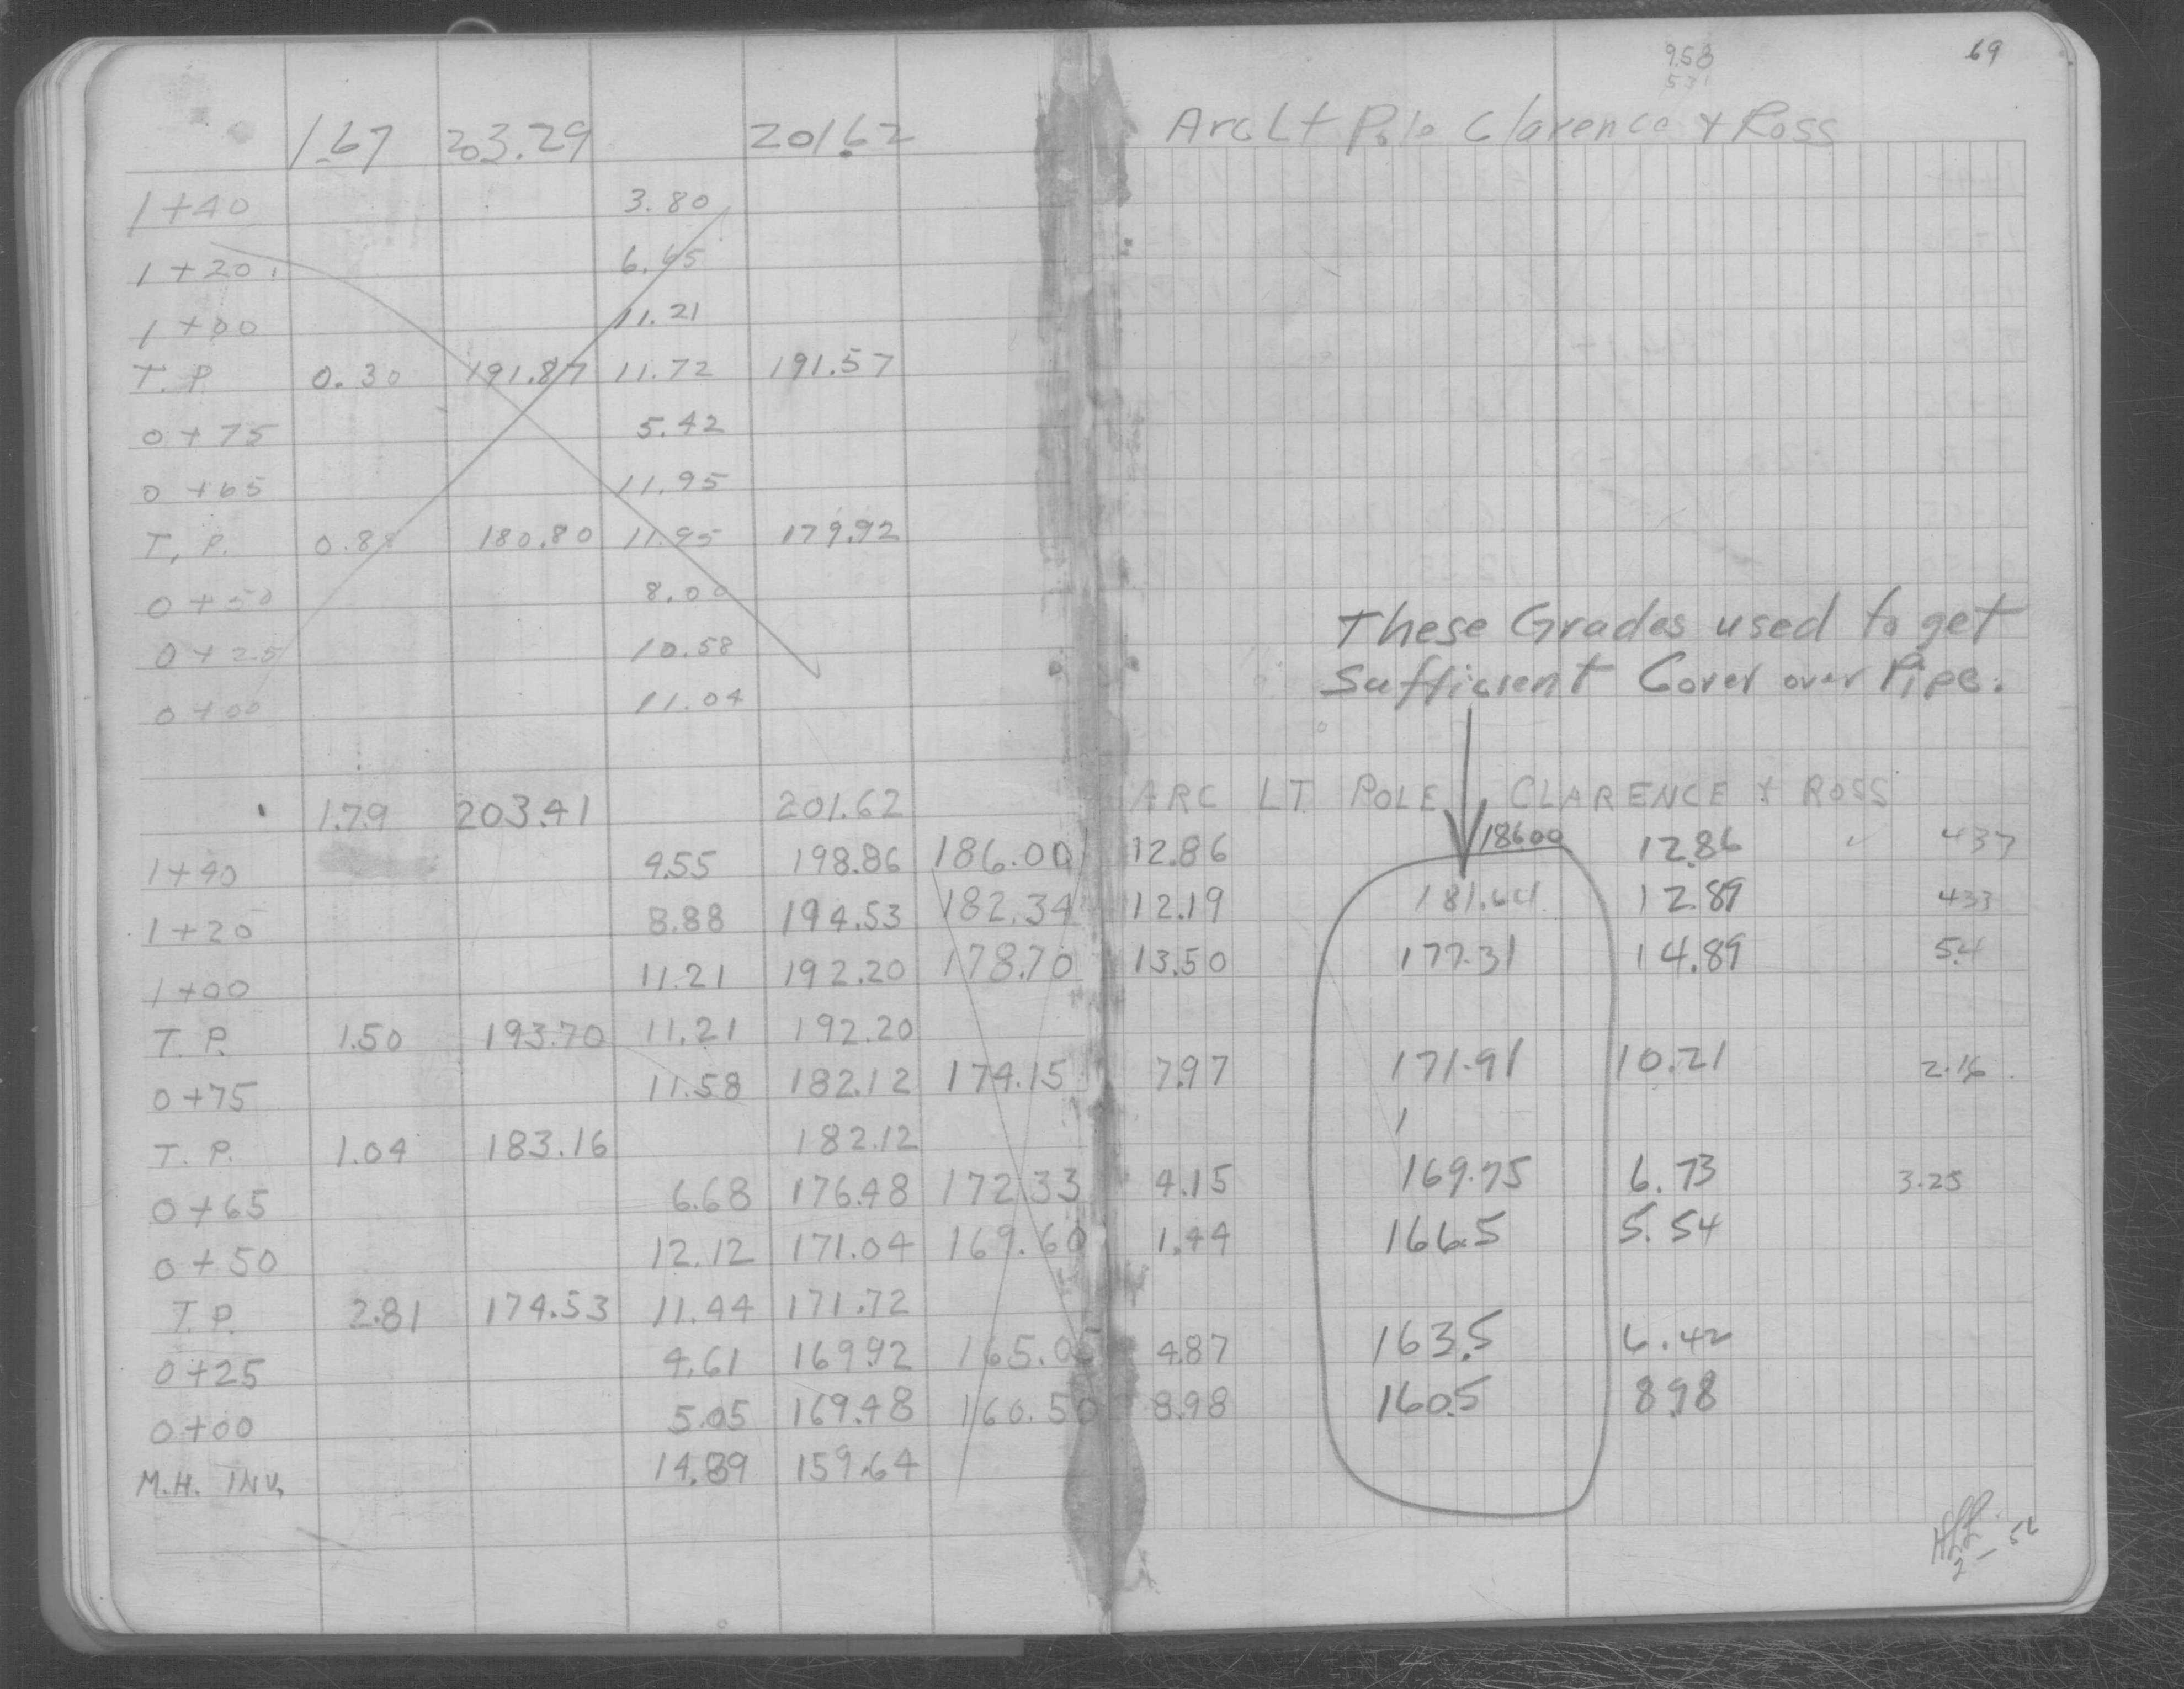 9.58 69
1.67 203.29 201.62 Arc Lt Pole Clarence & Ross
1+40 3.80
1+20 6.45
1+00 11.21
T.P. 0.30 191.87 11.72 191.57
0+75 5.42
0+65 11.95
T.P. 0.88 180.80 11.95 179.92
0+50 8.00
0+25 10.58
0+00 11.04
These Grades used to get
Sufficient Cover over Pipe.
1.79 203.41 201.62 ARC LT. POLE CLARENCE & ROSS
1+40 4.55 198.86 186.00 12.86 186.00 12.86 437
1+20 8.88 194.53 182.34 12.19 181.64 12.89 433
1+00 11.21 192.20 178.70 13.50 177.31 14.89 5.4
T.P. 1.50 193.70 11.21 192.20
0+75 11.58 182.12 174.15 7.97 171.91 10.21 2.16
T.P. 1.04 183.16 182.12
0+65 6.68 176.48 172.33 4.15 169.75 6.73 3.25
0+50 12.12 171.04 169.60 1.44 166.5 5.54
T.P. 2.81 174.53 11.44 171.72
0+25 4.61 169.92 165.05 4.87 163.5 6.42
0+00 5.05 169.48 160.50 8.98 160.5 8.98
M.H. INV. 14.89 159.64